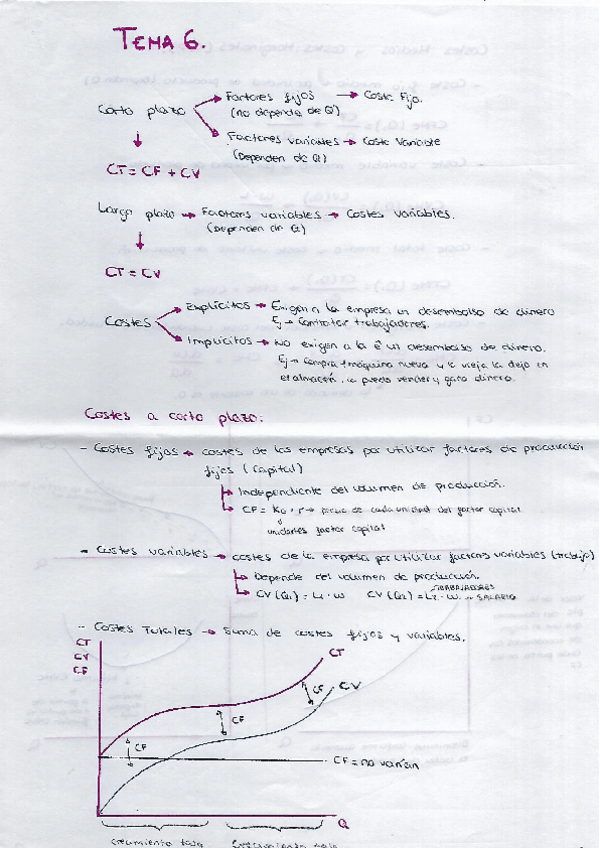 TEMA 6.
Corto plazo → Factores fijos → Coste Fijo.
(no depende de Q)
→ Factores variables → Coste Variable
(Dependen de Q)
CT = CF + CV
Largo plazo → Factores variables → Costes variables.
(Dependen de Q)
CT = CV
Costes → Explícitos → Exigen a la empresa un desembolso de dinero
Ej → Contratar trabajadores.
→ Implícitos → No exigen a la E un desembolso de dinero.
Ej → compra máquina nueva y la vieja la dejo en
el almacén, la puedo vender y gano dinero.
Costes a corto plazo:
- Costes fijos → costes de las empresas por utilizar factores de producción
fijos (capital)
→ Independiente del volumen de producción.
→ CF = K0 · r → precio de cada unidad del factor capital
unidades factor capital
- Costes variables → costes de la empresa por utilizar factores variables (trabajo)
→ Depende del volumen de producción.
→ CV (Q1) = L1 · w CV (Q2) = L2 · w → SALARIO
TRABAJADORES
- Costes Totales → Suma de costes fijos y variables.
CT
CV
CF
CT
CF
CV
CF
CF
CF = no varían
Q
Crecimiento tasa
Crecimiento tasa